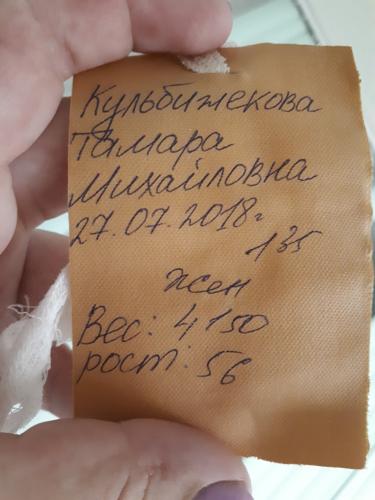 Кульбижекова
Тамара
Михайловна
27.07.2018г
1³⁵
жен
Вес: 4150
рост: 56